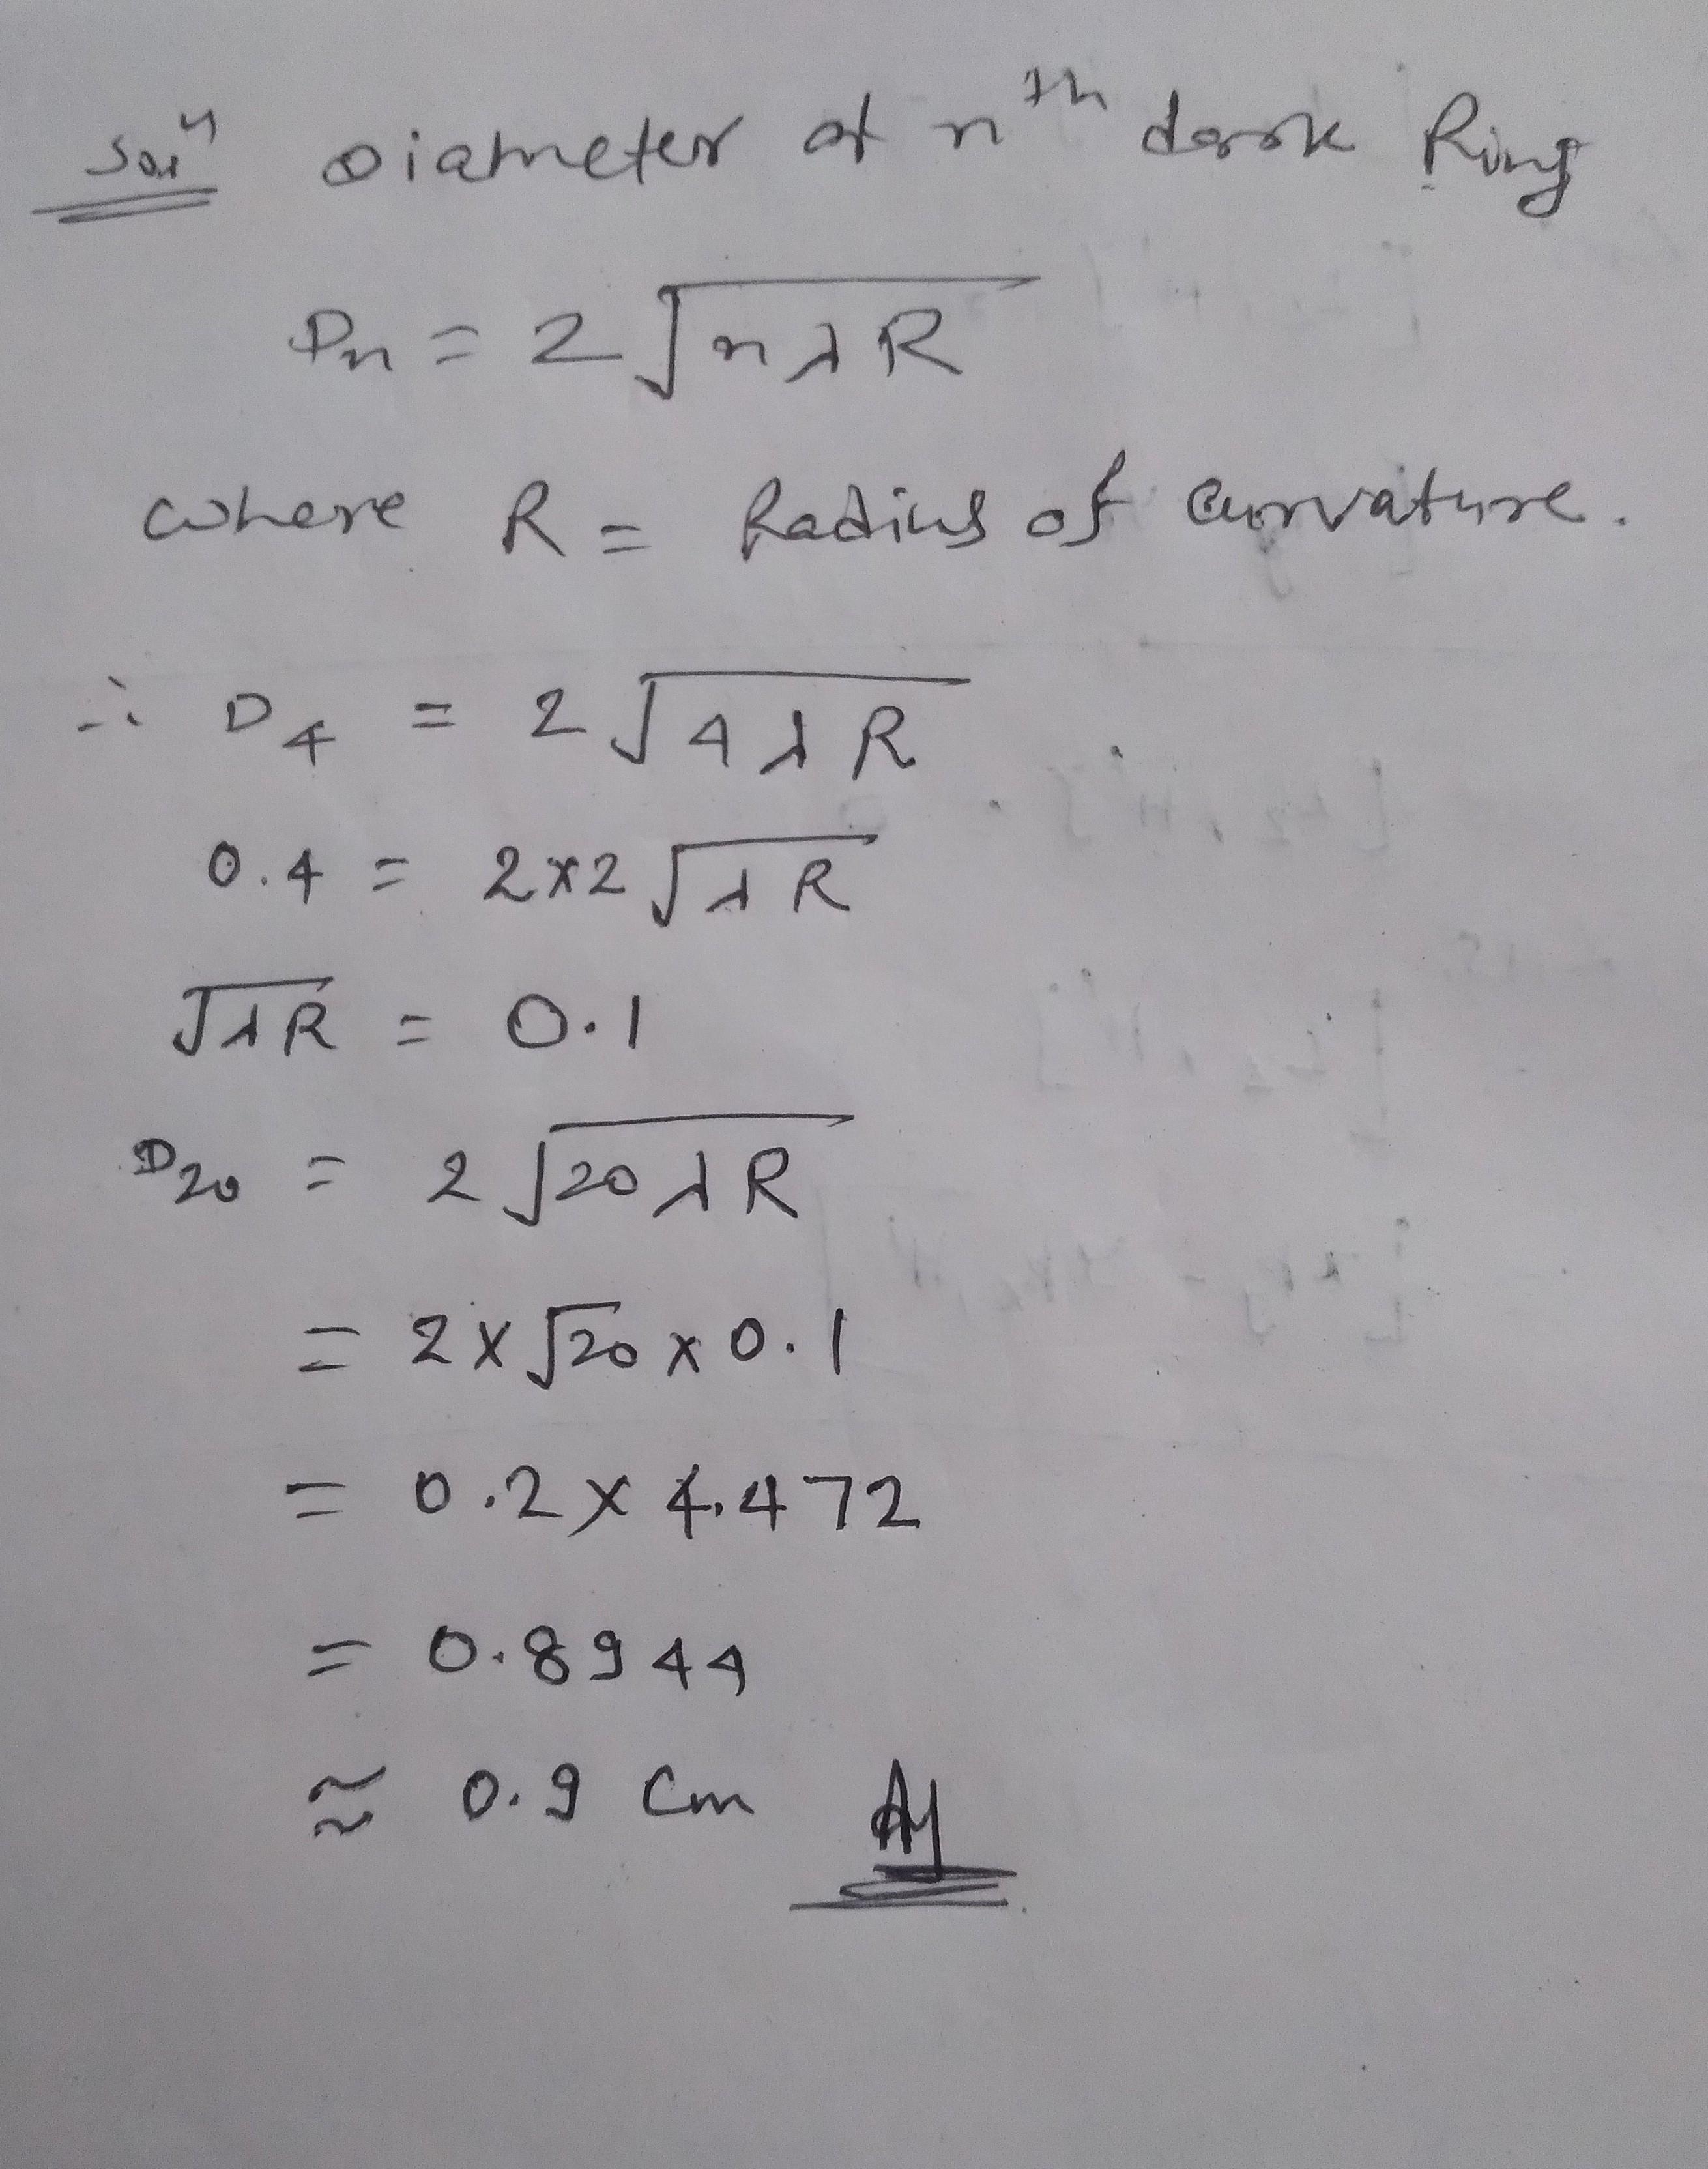 Solⁿ Diameter of nᵗʰ dark Ring
Dn = 2√nλR
where R = Radius of Curvature.
∴ D4 = 2√4λR
0.4 = 2×2√λR
√λR = 0.1
D20 = 2√20λR
= 2×√20×0.1
= 0.2×4.472
= 0.8944
≈ 0.9 Cm